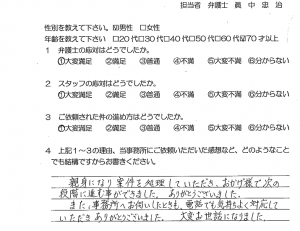 担当者 弁護士 眞 中 忠 治
性別を教えて下さい。 ☑男性 □女性
年齢を教えて下さい □20代□30代□40代□50代□60代☑70才以上
1 弁護士の応対はどうでしたか。
①大変満足 ②満足 ③普通 ④不満 ⑤大変不満 ⑥分からない
2 スタッフの応対はどうでしたか。
①大変満足 ②満足 ③普通 ④不満 ⑤大変不満 ⑥分からない
3 ご依頼された件の進め方はどうでしたか。
①大変満足 ②満足 ③普通 ④不満 ⑤大変不満 ⑥分からない
4 上記1～3の理由、当事務所にご依頼いただいた感想など、どのようなこと
でも結構ですからお書きください。
親身になり案件を処理していただき、おかげ様で次の
段階に進む事ができました。ありがとうございました。
また、事務所へお伺いしたときも、電話でも気持よく対応して
いただき ありがとうございました。 大変お世話になりました。